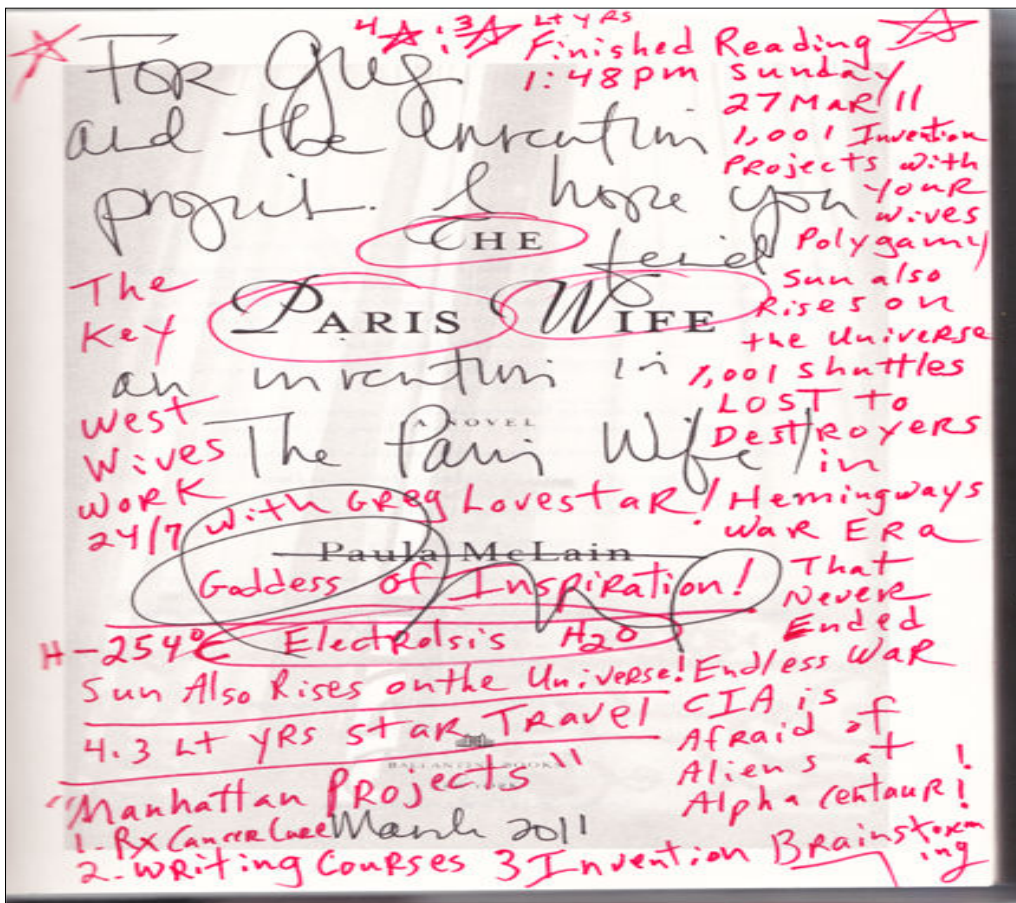 4 : 3 Lt YRS
Finished Reading
1:48pm Sunday
27 MAR 11
1,001 Invention
PRojects with
YOUR
wives
Polygamy
Sun also
Rises on
the Universe
1,001 shuttles
LOST to
DestRoyers
in
Hemingways
WAR ERA
That
Nevere
Ended
Endless WAR
CIA is
AfRaid of
Aliens at
Alpha CentauR!
For Greg
and the Invention
project. I hope you
find
THE
PARIS WIFE
an invention in
A NOVEL
The Paris Wife
The
Key
West
Wives
WORK
24/7 with GReg LovestaR!
Paula McLain
Goddess of InspiRation!
H -254°C ElectRolsis H2O
Sun Also Rises on the UniveRse!
4.3 Lt YRS staR TRavel
BALLANTINE BOOKS
"Manhattan PRojects"
1. RX CanceR CuRe
March 2011
2. WRiting CouRses 3 Invention BRainstoRm
ing